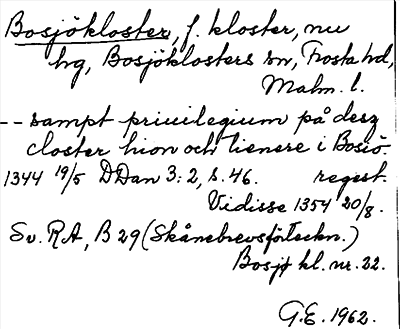 Bosjökloster, f. kloster, nu
hg, Bosjöklosters sn, Frosta hd,
Malm. l.
-- sampt priuilegium på desz
closter hion och tienere i Bosiö.
1344 19/5 DDan 3:2, s. 46. regest.
Vidisse 1354 20/8.
Sv. RA, B 29 (Skånebrevsförteckn.)
Bosjö kl. nr. 22.
G.E. 1962.